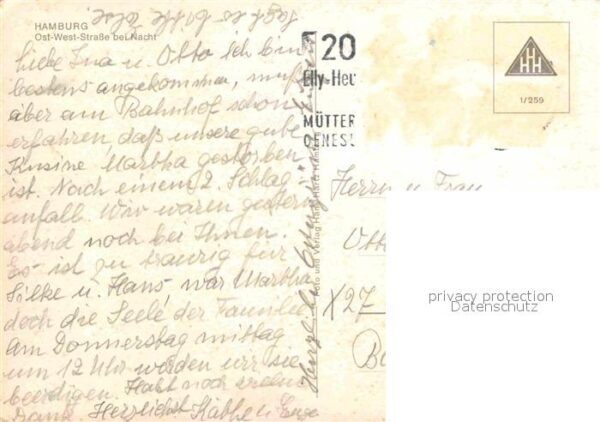 HAMBURG
Ost-West-Straße bei Nacht
Liebe Ina u. Otto ich bin
bestens angekommen, muß
aber am Bahnhof schon
erfahren, daß unsere gute
Kusine Martha gestorben
ist. Nach einem 2. Schlag-
anfall. Wir waren gestern
abend noch bei Ihnen.
Es ist zu traurig für
Silke u. Hans, war Martha
doch die Seele der Familie
Am Donnerstag mittag
um 12 Uhr werden wir sie
beerdigen. Habt noch vielen
Dank. Herzlichst Käthe u.
Foto und Verlag Hans Hamburg
20
Elly-Heu
MÜTTER
GENESU
HHH
1/259
Herrn u. Frau
Ott
X27
privacy protection
Datenschutz